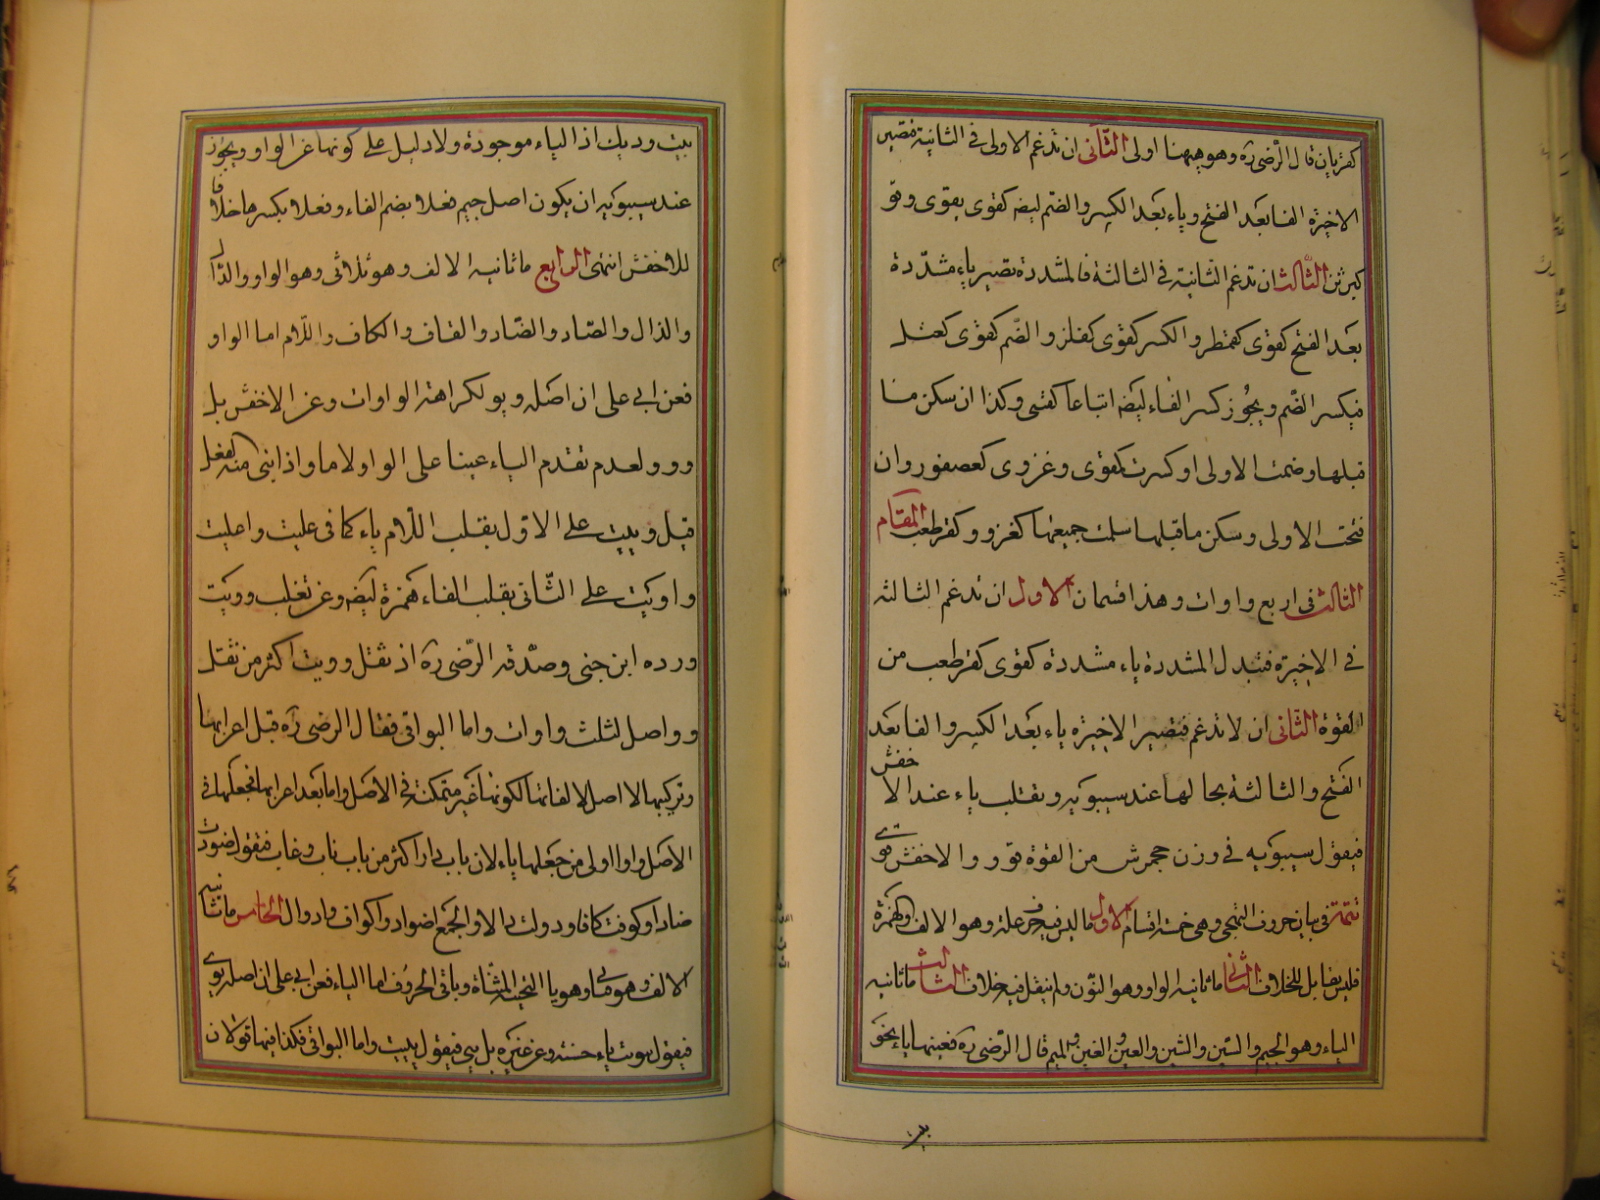 كفزيان قال الرّضى ره وهو ههنا اولى الثّانى ان تدغم الاولى فى الثانية فتصير
الاخيرة الفا بعد الفتح وياء بعد الكسر والضم ليضه كقوى يقوى وقوّ
كبرثن الثّالث ان تدغم الثّانية فى الثالثة فالمشددة تصير ياء مشدّدة
بعد الفتح كقوىّ كقمطر والكسر كقوىّ كفلز والضّم كقوىّ كعتل
فيكسر الضّم ويجُوز كسر الفاء ليضه اتباعا كعتى وكذا ان سكن ما
قبلها وضمت الاولى او كسرت كقوى وغزوى كعصفور وان
فتحت الاولى وسكن ما قبلها سلمت جميعها كغزوو كقرطعب المقام
الثالث فى اربع واوات وهذا قسمان الاول ان تدغم الثالثة
فى الاخيرة فتبدل المشددة ياء مشددة كقوى كقرطعب من
القوة الثّانى ان لا تدغم فتصير الاخيرة ياء بعد الكسر والفا بعد
الفتح والثالثة بحالها عند سيبويه وتقلب ياء عند الاخفش
فيقول سيبويه فى وزن جحمرش من القوة قوو والاخفش قوى
تتمّة فى بيان حروف التهجى وهى خمسة اقسام الاول ما ليس فيه حرف علة وهو الالف والهمزة
فليس بقابل للخلاف الثانى ما ثانيه الواو وهو النّون ولم ينقل فيه خلاف الثالث ما ثانيه
الياء وهو الجيم والسّين والشين والعين والغين والميم قال الرّضى ره فعينها ياء نحو
بيت وديك اذ الياء موجودة ولا دليل على كونها عن الواو ويجوز
عند سيبويه ان يكون اصل جيم فعلا بضم الفاء وفعلا بكسرها خلافا
للاخفش انتهى الرابع ما ثانيه الالف وهو ثلاثى وهو الواو والدال
والذال والصّاد والضّاد والقاف والكاف واللّام اما الواو
فعن ابى على ان اصله ويو لكراهة الواوات وعن الاخفش بل
ووو لعدم تقدم الياء عينا على الواو لاما واذا بنى منه لفعل
قيل وييت على الاوّل بقلب اللّام ياء كما فى عليت واعليت
واويت على الثّانى بقلب الفاء كهمزة ليضه وعن ثعلب وويت
ورده ابن جنى وصدّقه الرّضى ره اذ ثقل وويت اكثر من ثقل
وواصل لثلث واوات واما البواقى فقال الرضى ره قبل اعرابها
وتركيبها لا اصل لالفاتها لكونها غير متمكنة فى الاصل واما بعد اعرابها فجعلها فى
الاصل واوا اولى من جعلها ياء لان باب دار اكثر من باب ناب وغاب فتقول ضودت
ضادا وكوفت كافا ودولت دالا والجمع اضواد واكواف وادوال الخامس ما ثانيه
الالف وهو مبنى وهو يا التحتية المثنّاة وباقى الحرُوف اما الياء فعن ابى على ان اصله يوى
فيقول يويت ياء حسنة وعن غيره بل يى فيقول ييت واما البواقى فكذا فيها قولان